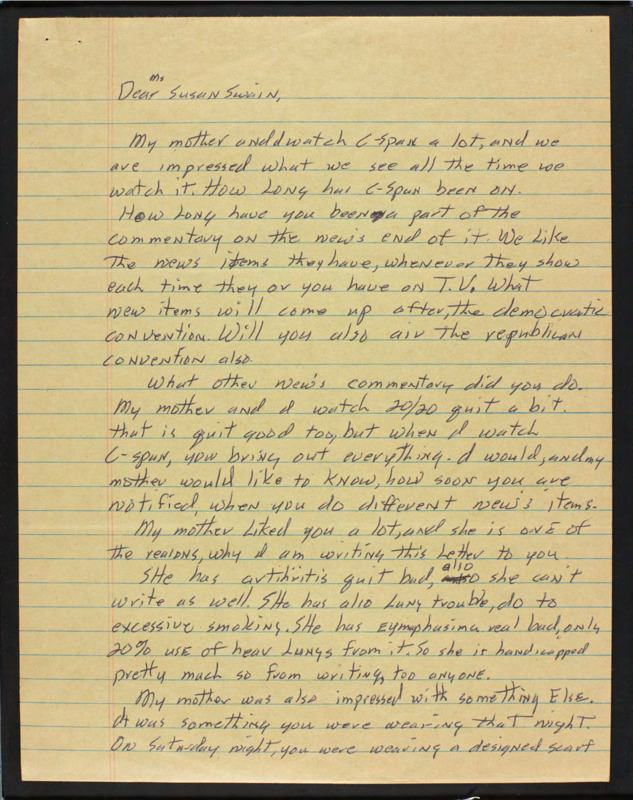 Ms
Dear Susan Swain,
My mother and I watch C-Span a lot, and we
are impressed what we see all the time we
watch it. How Long has C-Span been on.
How Long have you been a part of the
commentary on the new's end of it. We Like
The news items they have, whenever they show
each time they or you have on T.V. What
new items will come up after, the democratic
convention. Will you also air the republican
convention also.
What other new's commentary did you do.
My mother and I watch 20/20 quit a bit.
that is quit good too, but when I watch
C-span, you bring out everything. I would, and my
mother would like to know, how soon you are
notified, when you do different new's items.
My mother Liked you a lot, and she is one of
the reasons, why I am writing this Letter to you.
SHe has arthritis quit bad, also she can't
write as well. SHe has also Lung trouble, do to
excessive smoking. SHe has Eymphasima real bad, only
20% use of hear Lungs from it. So she is handicapped
pretty much so from writing, too anyone.
My mother was also impressed with something Else.
It was something you were wearing that night.
On Saturday night, you were wearing a designed scarf